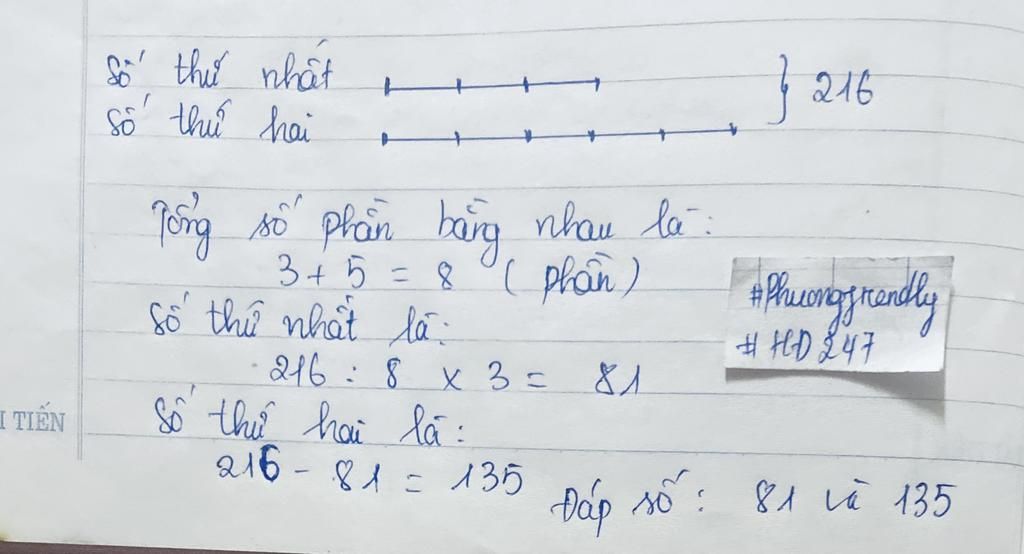 Số thứ nhất
216
Số thứ hai
Tổng số phần bằng nhau là:
3 + 5 = 8 (phần)
#Phuongfrendly
# HD 247
Số thứ nhất là:
216 : 8 x 3 = 81
Số thứ hai là:
I TIẾN
216 - 81 = 135
Đáp số: 81 và 135